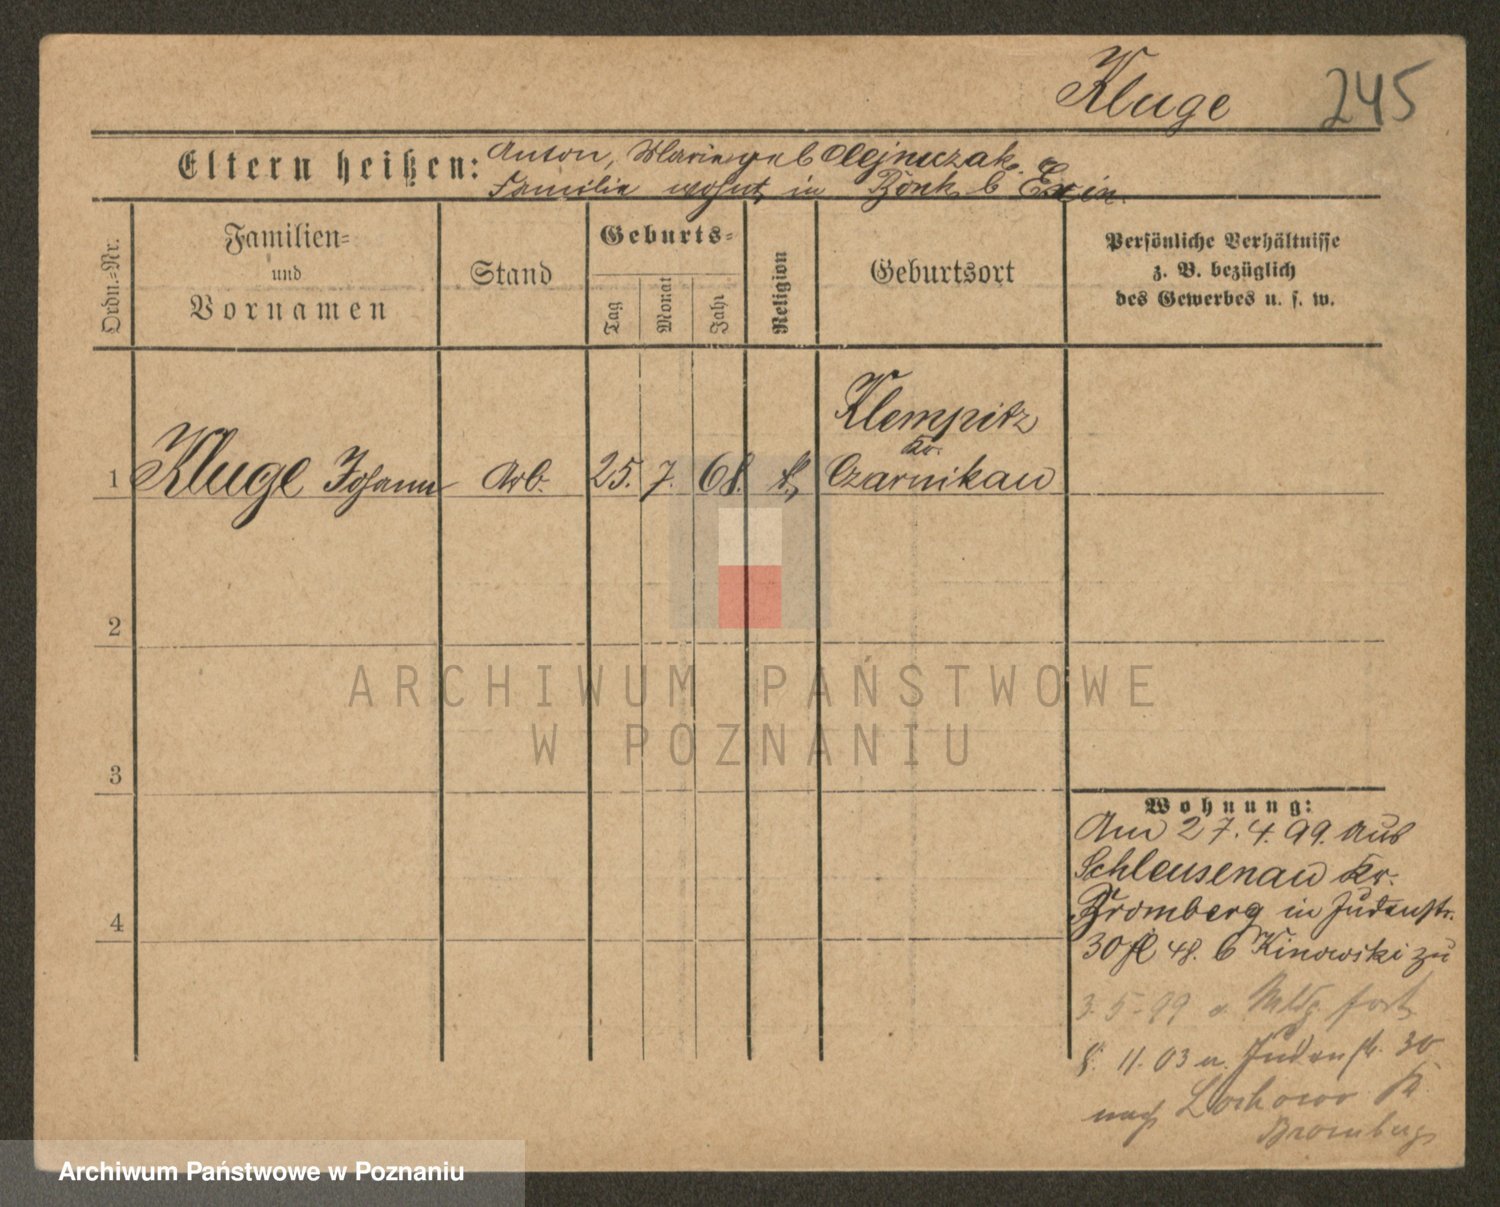 Kluge 245
Eltern heißen: Anton, Marie geb Olejniczak.
Familie wohnt in Bonk b Exin.
Ordn.=Nr.
Familien=
und
Vornamen
Stand
Geburts=
Tag
Monat
Jahr
Religion
Geburtsort
Persönliche Verhältnisse
z. B. bezüglich
des Gewerbes u. s. w.
Klempitz
Kr.
1 Kluge Johann Arb. 25. 7. 68. k. Czarnikau
2
ARCHIWUM PAŃSTWOWE
W POZNANIU
3
4
Wohnung:
Am 27.4.99. aus
Schleusenau Kr.
Bromberg in Judenstr.
30 48. b Kinowski zu
3.5.99 fort
11.03 Judenstr. 30
nach Lochowo K.
Bromberg
Archiwum Państwowe w Poznaniu